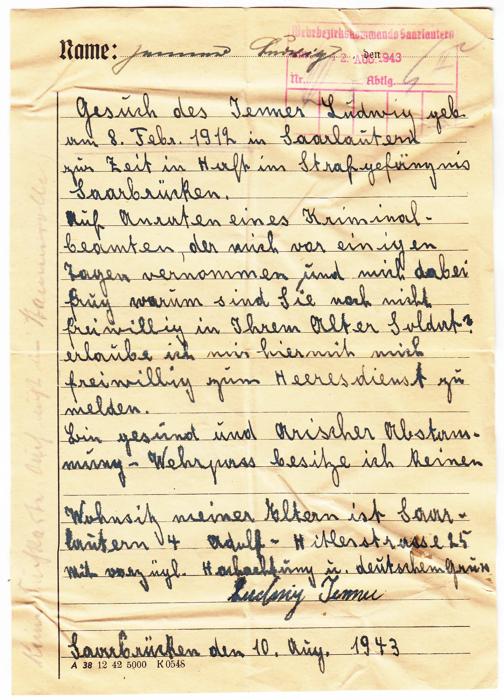 Wehrbezirkskommando Saarlautern
Name: Jenner Ludwig den
2. Aug. 1943
Nr. Abtlg.
Gesuch des Jenner Ludwig geb.
am 8. Febr. 1912 in Saarlautern
zur Zeit in Haft im Strafgefängnis
Saarbrücken.
Auf Anraten eines Kriminal-
beamten, der mich vor einigen
Tagen vernommen und mich dabei
frug warum sind Sie noch nicht
freiwillig in Ihrem Alter Soldat?
erlaube ich mir hiermit mich
freiwillig zum Heeresdienst zu
melden.
Bin gesund und Arischer Abstam-
mung - Wehrpass besitze ich keinen
Wohnsitz meiner Eltern ist Saar-
lautern 4 Adolf-Hitlerstrasse 25
Mit vorzügl. Hochachtung u. deutschem Gruss
Ludwig Jenner
Saarbrücken den 10. Aug. 1943
A 38 12 42 5000 K 0548